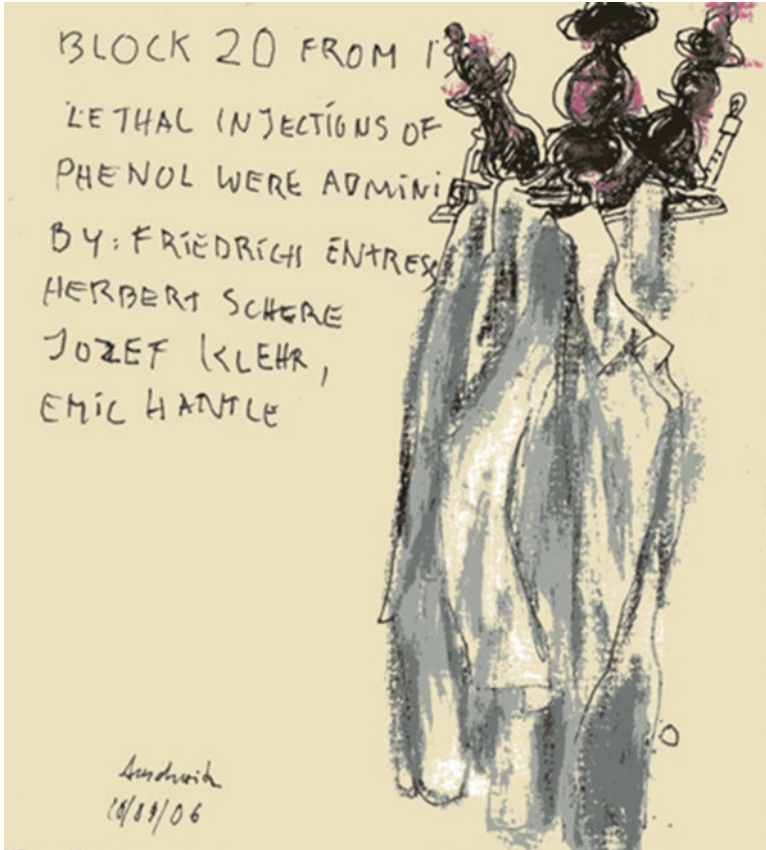 BLOCK 20 FROM 1
LETHAL INJECTIONS OF
PHENOL WERE ADMINI
BY: FRIEDRICH ENTRESS
HERBERT SCHERE
JOZEF KLEHR,
EMIL HANTLE
Auschwitz